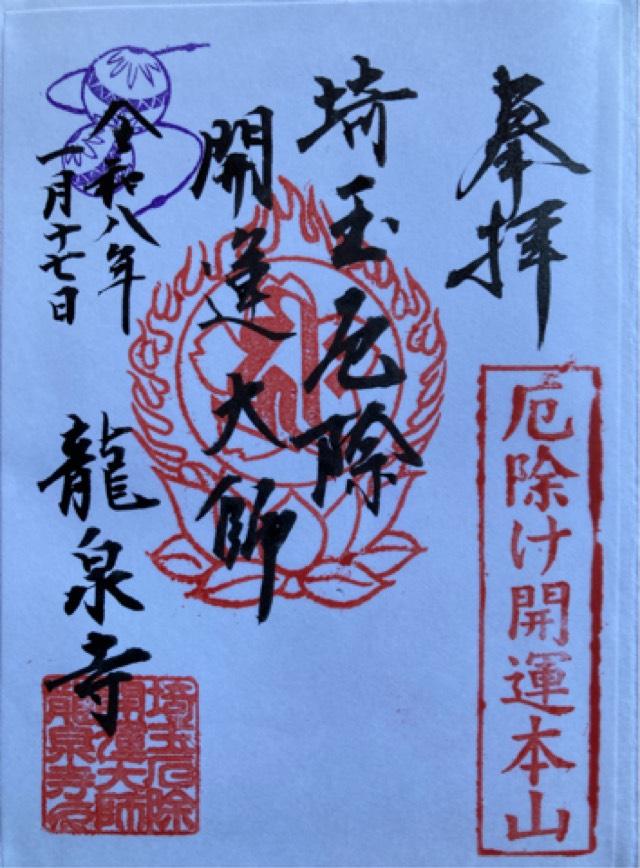 奉拝
厄除け開運本山
埼玉厄除
開運大師
令和八年
一月十七日
龍泉寺
埼玉厄除
開運大師
龍泉寺印